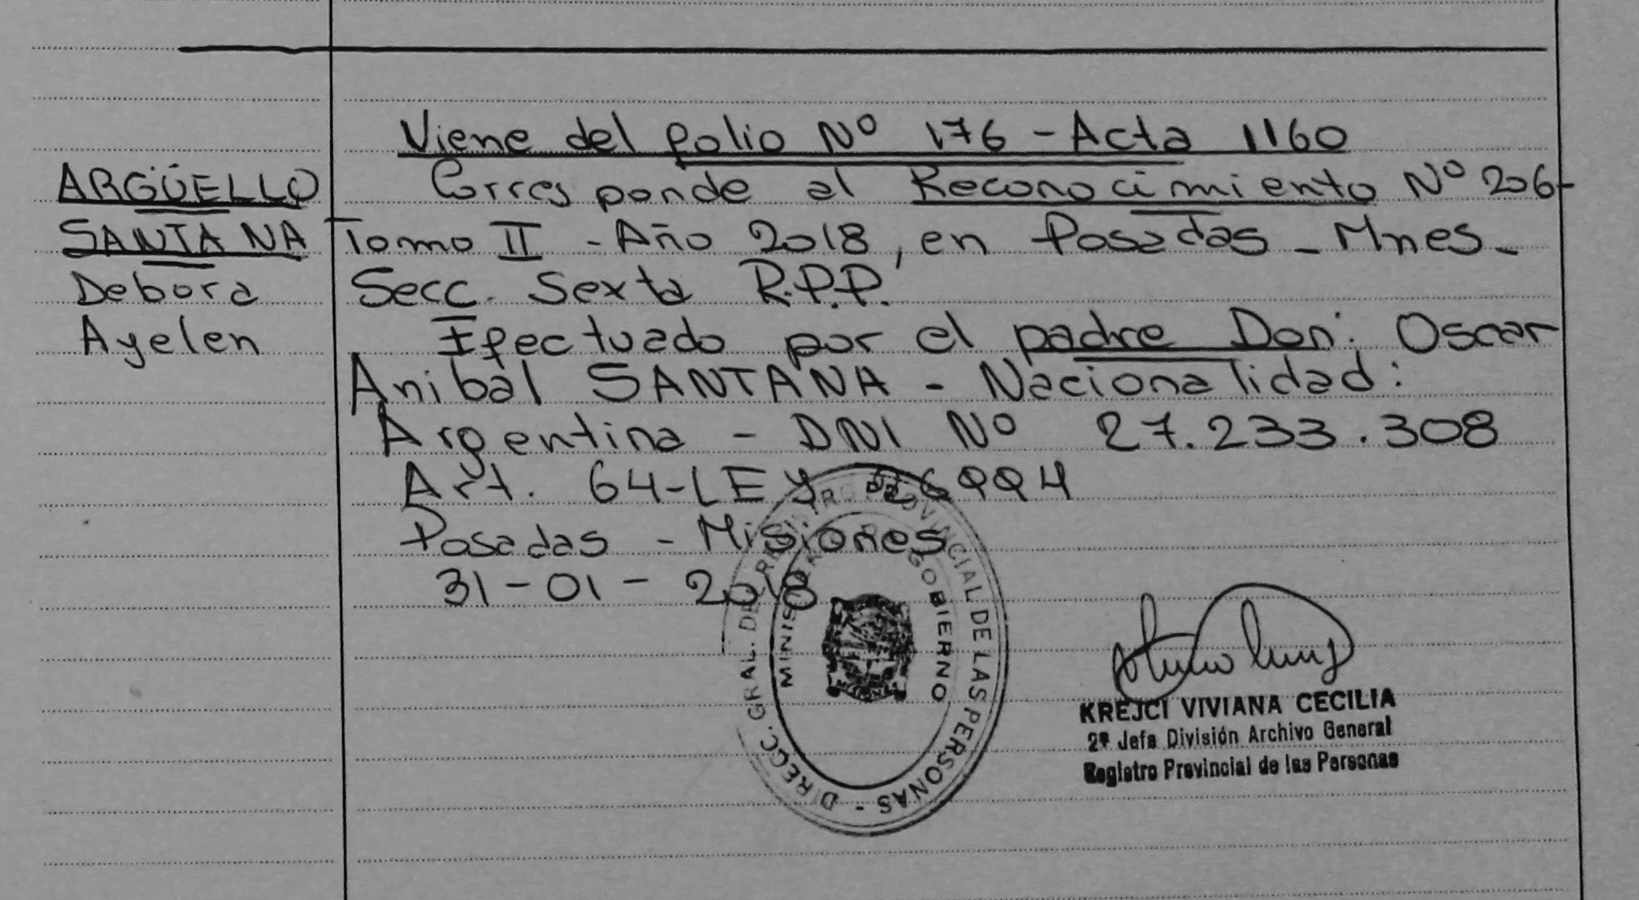 Viene del folio Nº 176 - Acta 1160
ARGÜELLO
SANTANA
Debora
Ayelen
Corresponde al Reconocimiento Nº 206-
Tomo II - Año 2018, en Posadas - Mnes -
Secc. Sexta R.P.P.
Efectuado por el padre Don: Oscar
Anibal SANTANA - Nacionalidad:
Argentina - DNI Nº 27.233.308
Art. 64-LEY 26994
Posadas - Misiones
31-01-2018
DIRECC. GRAL. DEL REGISTRO PROVINCIAL DE LAS PERSONAS -
MINISTERIO DE GOBIERNO
KREJCI VIVIANA CECILIA
2ª Jefa División Archivo General
Registro Provincial de las Personas